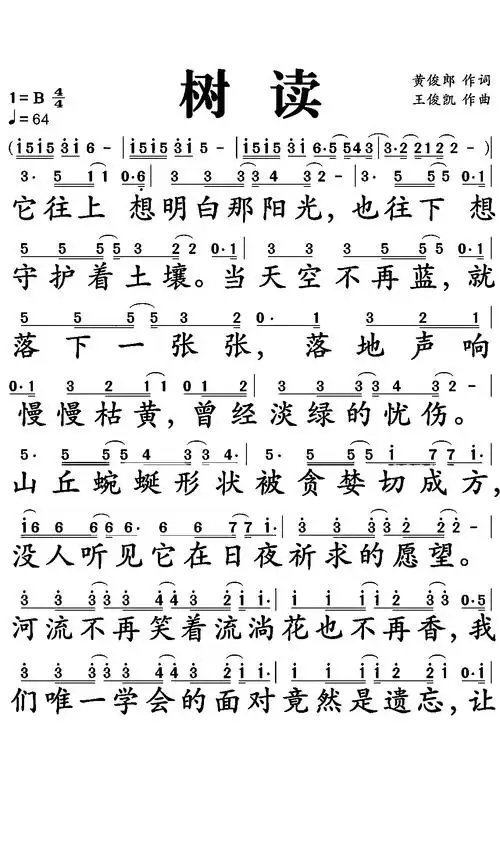 树读
黄俊郎 作词
王俊凯 作曲
1=B 4/4
♩=64
(i5i5 3i6 - | i5i5 3i5 - | i5i5 3i6·5543 | 3·22122 - )
3· 5 11 0·6 | 3 3 3343 32 - | 3· 5 55 0·1
它往上 想明白那阳光，也往下 想
5 5 5553 22 0·1 | 3 3 3332 1 0·1
守护着土壤。当天空不再蓝，就
5 5 5553 2 | 0· 1 3 2 1
落下一张张，落地声响
0·1 3 2 11 01 2 | 3 3 3343 32 -
慢慢枯黄，曾经淡绿的忧伤。
5· 5554 33 34· | 5· 555 i 77 -
山丘蜿蜒形状被贪婪切成方，
i66 6666· 6 6 77 i· | 3 3 3332 22 i·
没人听见它在日夜祈求的愿望。
3 3 3333 4432i i· | i i ii23 30·5
河流不再笑着流淌花也不再香，我
3 3 3333 4432i i· | i i ii23 2 0·i
们唯一学会的面对竟然是遗忘，让